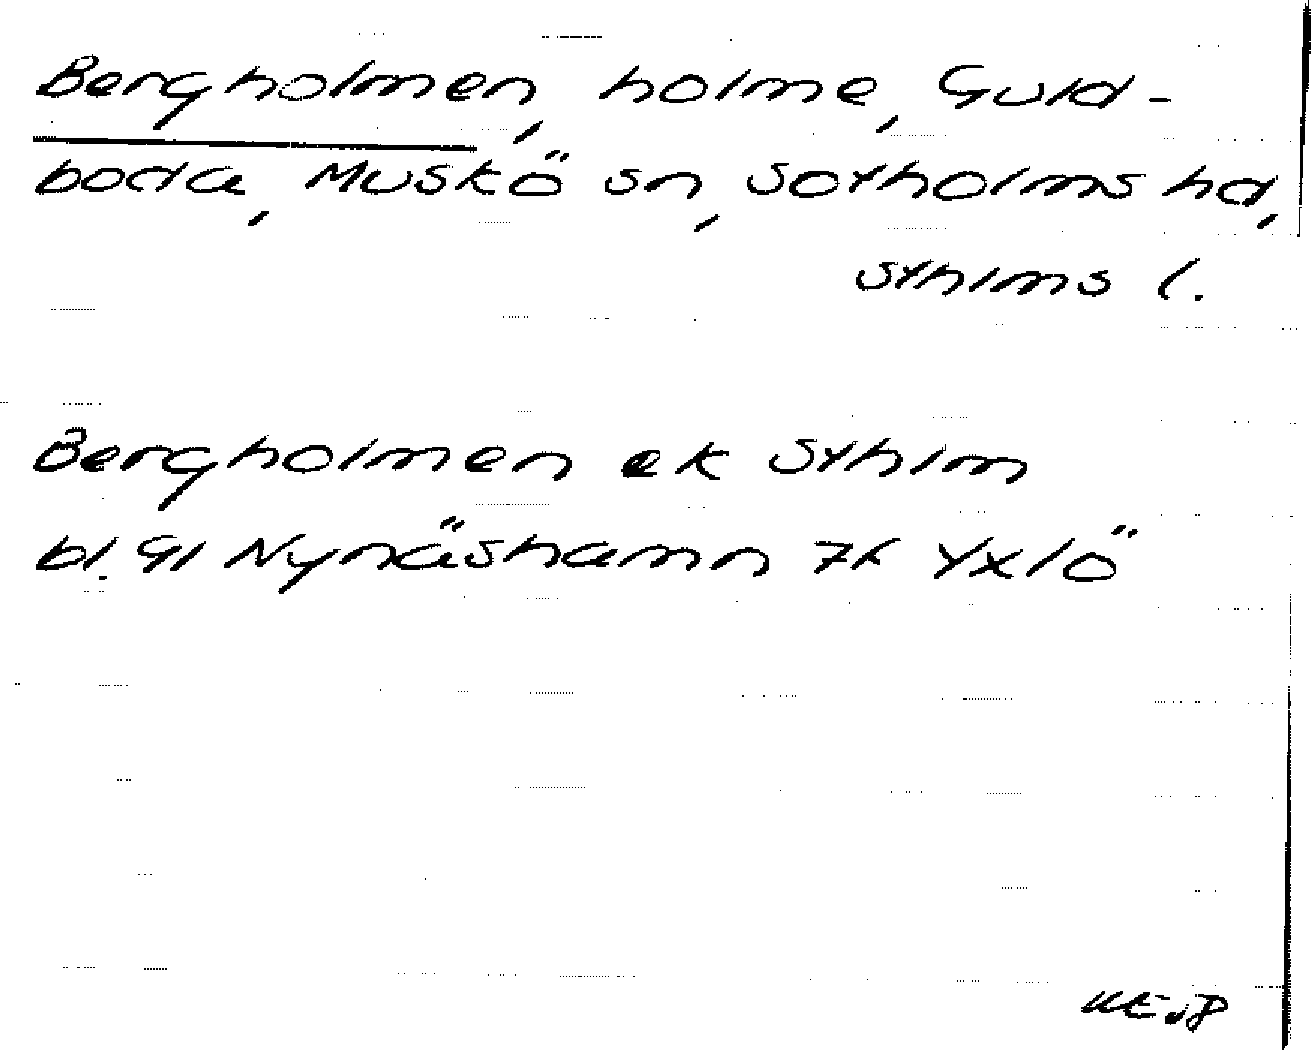 Bergholmen, holme, Guld-
boda, Muskö sn, Sotholms hd,
Sthlms l.
Bergholmen ek Sthlm
bl. 91 Nynäshamn 7k Yxlö